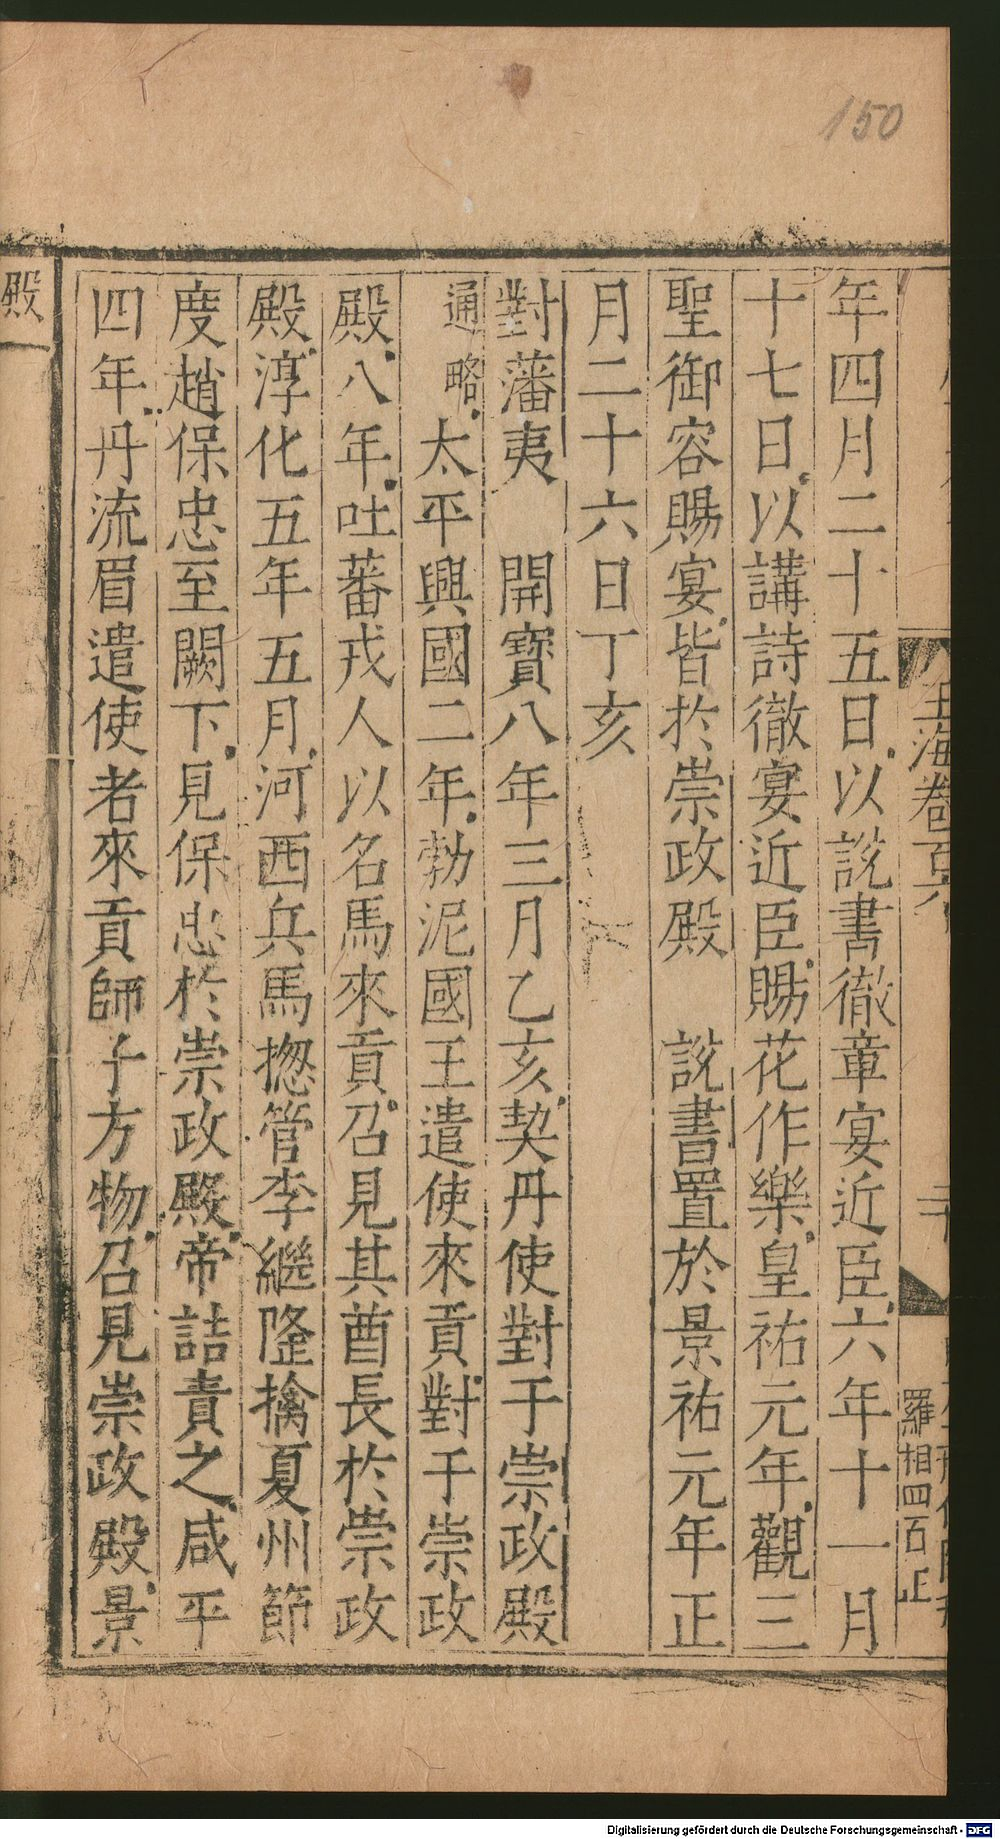 150
年四月二十五日以説書徹章宴近臣六年十一月
十七日以講詩徹宴近臣賜花作樂皇祐元年觀三
聖御容賜宴皆於崇政殿　説書置於景祐元年正
月二十六日丁亥
對藩夷　開寶八年三月乙亥契丹使對于崇政殿
通略太平興國二年勃泥國王遣使來貢對于崇政
殿八年吐蕃戎人以名馬來貢召見其酋長於崇政
殿淳化五年五月河西兵馬揔管李繼隆擒夏州節
度趙保忠至闕下見保忠於崇政殿帝詰責之咸平
四年丹流眉遣使者來貢師子方物召見崇政殿景
殿
玉海卷百六
羅相四百正
Digitalisierung gefördert durch die Deutsche Forschungsgemeinschaft - DFG